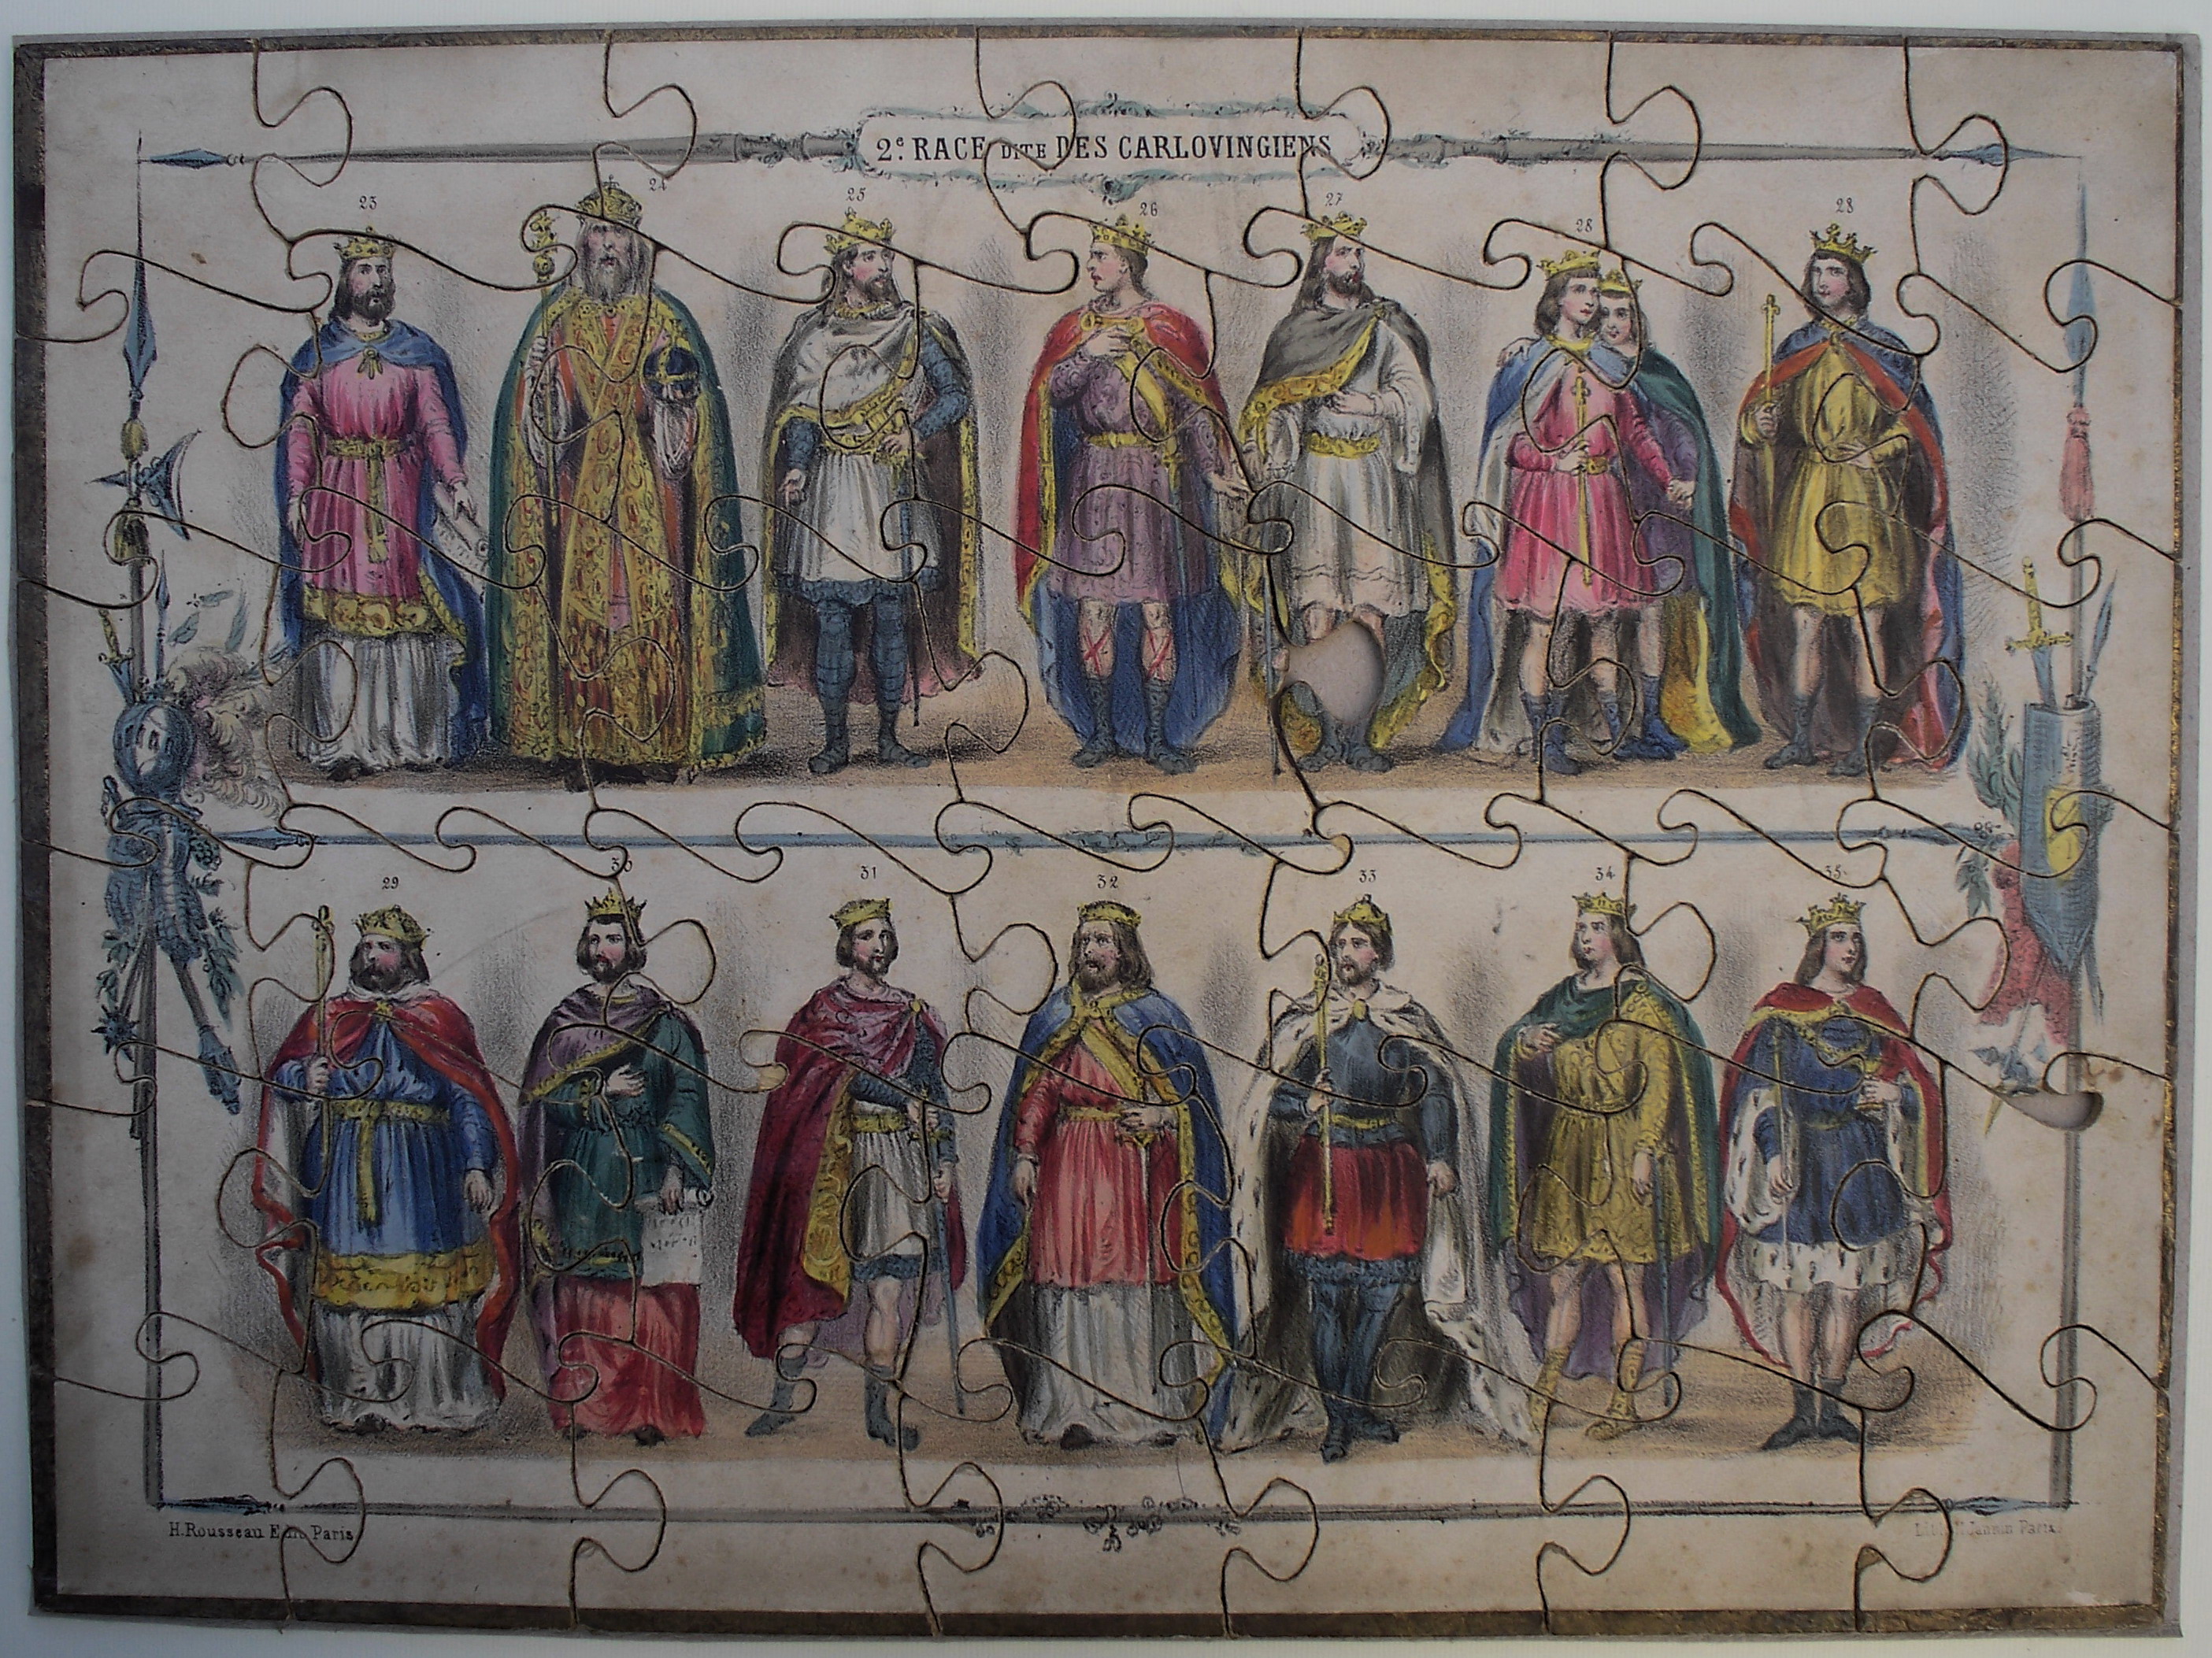 2e. RACE DITE DES CARLOVINGIENS
23 24 25 26 27 28 28
29 30 31 32 33 34 35
H. Rousseau Edit. Paris
Jannin Paris.